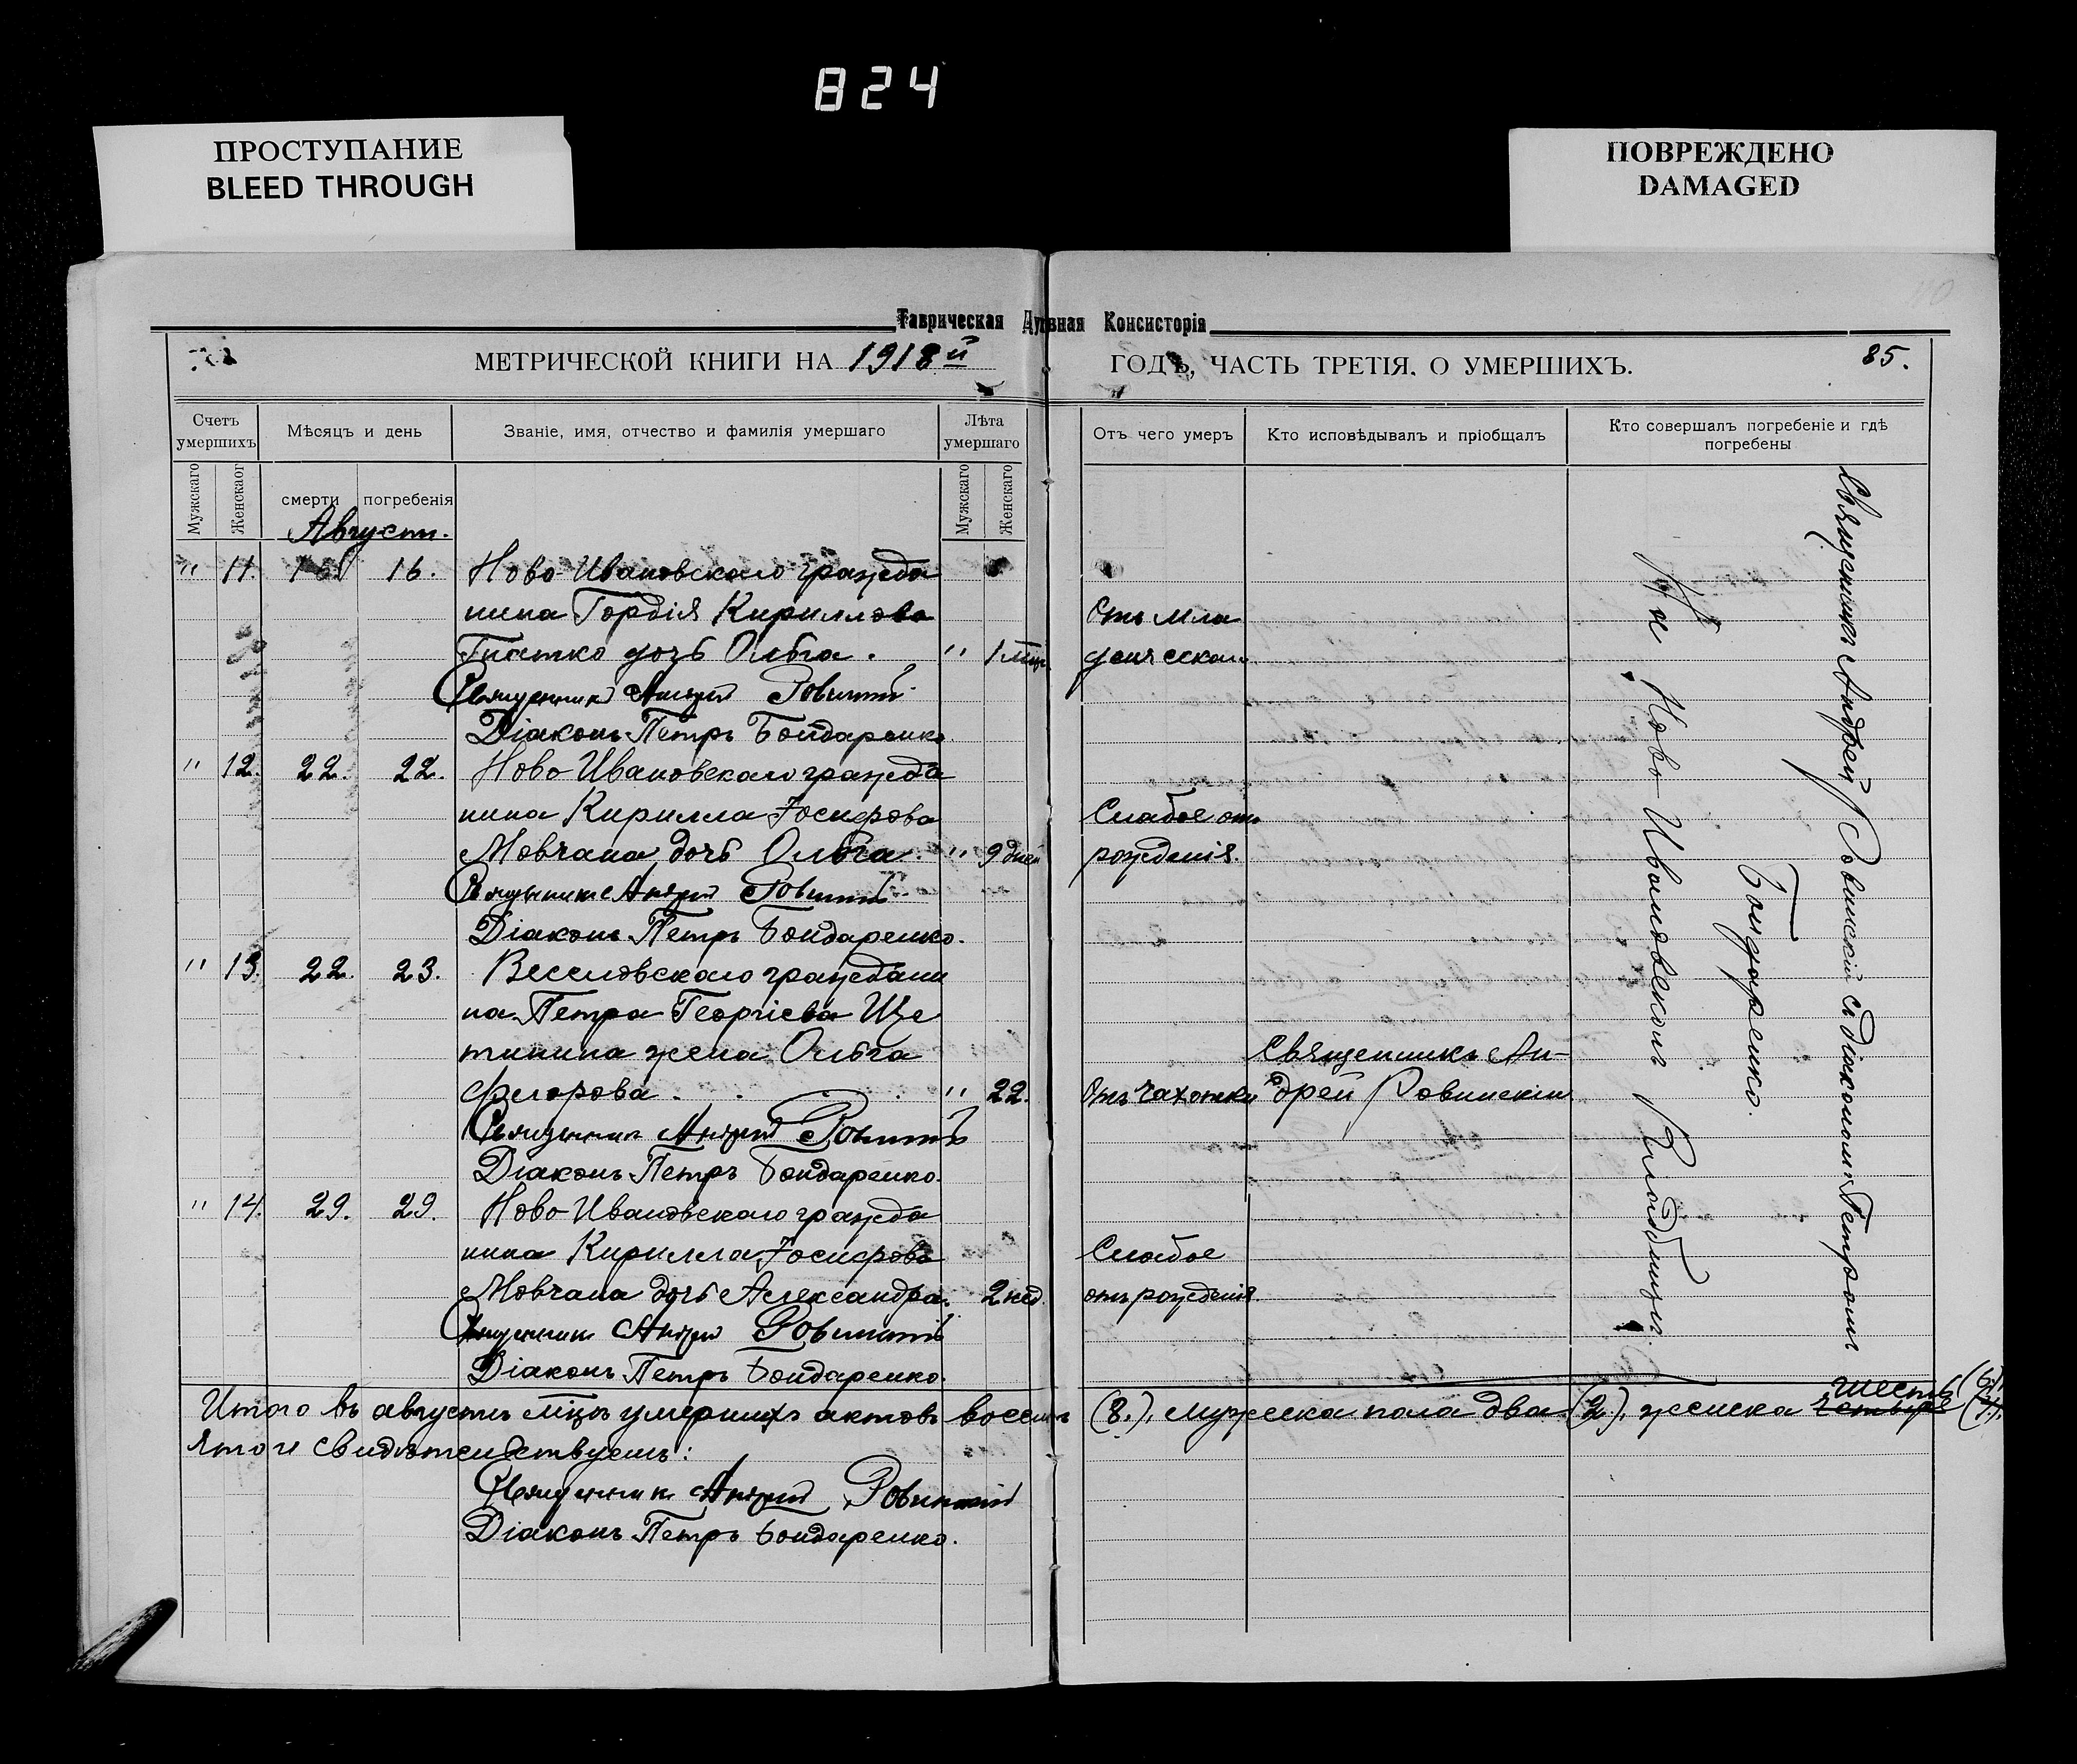 824
ПРОСТУПАНИЕ
BLEED THROUGH
ПОВРЕЖДЕНО
DAMAGED
Таврическая Духовная Консисторія
МЕТРИЧЕСКОЙ КНИГИ НА 1918й ГОДЪ, ЧАСТЬ ТРЕТІЯ, О УМЕРШИХЪ. 85.
Счетъ умершихъ
Мѣсяцъ и день
Званіе, имя, отчество и фамилія умершаго
Лѣта умершаго
Отъ чего умеръ
Кто исповѣдывалъ и пріобщалъ
Кто совершалъ погребеніе и гдѣ погребены
Мужскаго Женскаог смерти погребенія Мужскаго Женскаго
Августъ.
" 11. 16. Ново-Ивановскаго гражда
нина Гордія Кириллова
дочь Ольга. " 1 мѣс.
Отъ мла
денческой
Священникъ Андрей Ровинскій
Діаконъ Петръ Бондаренко
" 12. 22. 22. Ново-Ивановскаго гражда
нина Кирилла Іосифова
Мовчана дочь Ольга. " 9 дней
Слабое отъ
рожденія.
Священникъ Андрей Ровинскій
Діаконъ Петръ Бондаренко.
" 13. 22. 23. Веселовскаго граждани
на Петра Георгіева Ще
тинина жена Ольга
Феодорова. " 22.
Отъ чахотки
Священникъ Ан-
дрей Ровинскій
Священникъ Андрей Ровинскій
Діаконъ Петръ Бондаренко.
" 14. 29. 29. Ново-Ивановскаго гражда
нина Кирилла Іосифова
Мовчана дочь Александра. 2 нед.
Слабое
отъ рожденія.
Священникъ Андрей Ровинскій
Діаконъ Петръ Бондаренко.
Священникъ Андрей Ровинскій съ Діакономъ Петромъ
Бондаренко.
На Ново-Ивановскомъ кладбищѣ.
Итого въ августѣ мѣцѣ умершихъ актовъ восемь (8.), мужеска пола два (2.), женска четыре шесть (6.)
Въ томъ свидѣтельствуемъ:
Священникъ Андрей Ровинскій
Діаконъ Петръ Бондаренко.